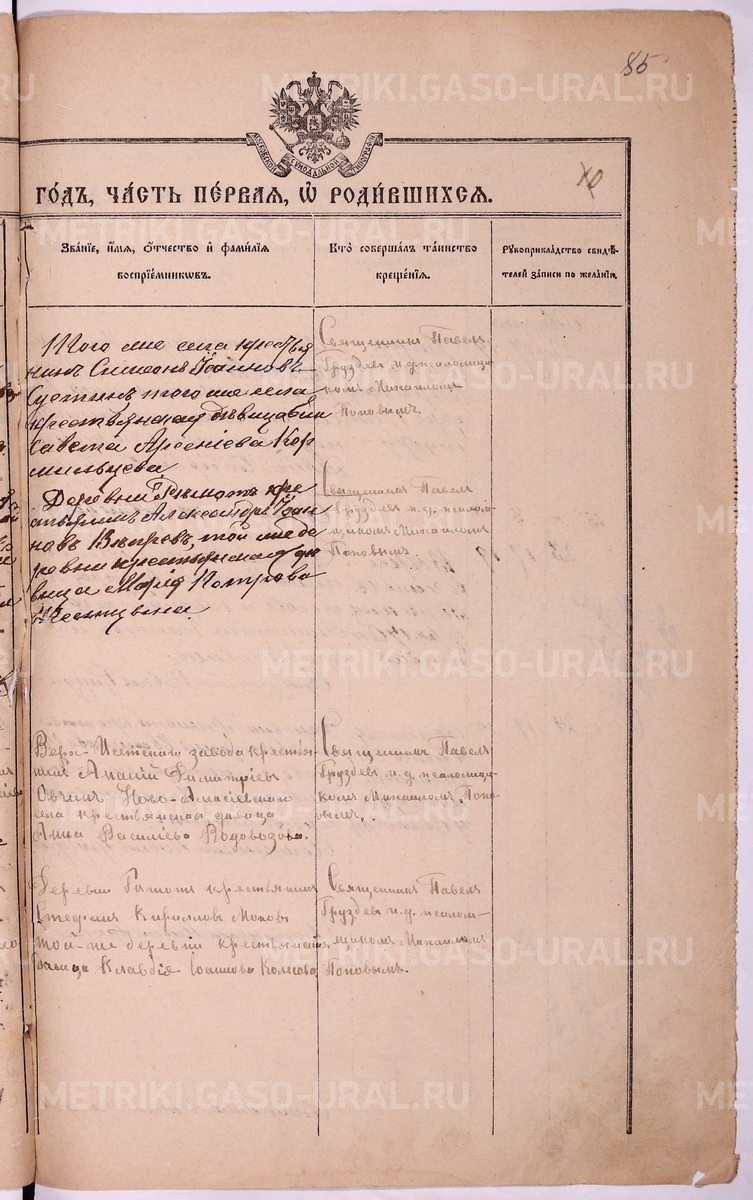 85
METRIKI.GASO-URAL.RU
МОСКОВСКОЙ СѴНОДАЛЬНОЙ ТИПОГРАФІИ
ГОДЪ, ЧАСТЬ ПЕРВАЯ, Ѡ РОДИВШИХСЯ.
Званіе, имя, отчество и фамилія
воспріемниковъ.
Кто совершалъ таинство
крещенія.
Рукоприкладство свидѣ-
телей записи по желанію.
Того же села крестья
нинъ Симеонъ Іоанновъ
того же села
крестьянская дѣвица Ели
савета Арсеніева Кор
мильцева
Священникъ Павелъ
Груздев и. д. псаломщи
комъ Михаиломъ
Поповымъ.
Деревни Гамоты кре
стьянинъ Александръ Іоан
новъ той же де
ревни крестьянская дѣ
вица Марія Петрова
Священникъ Павелъ
Груздев и. д. псалом-
щикомъ Михаиломъ
Поповымъ.
Верх-Исетскаго завода крестья-
нинъ Ананій Димитріев
Овчин Ново-Алексѣевскаго
села крестьянская дѣвица
Анна Василіева Водовозова.
Священникъ Павелъ
Груздев и. д. псаломщи-
комъ Михаиломъ Попо-
вымъ.
Деревни Гамоты крестьянинъ
Стефанъ Кириллов
той-же деревни крестьянская
дѣвица Клавдія Іоаннова Колясова
Священникъ Павелъ
Груздев и. д. псалом-
щикомъ Михаиломъ
Поповымъ.